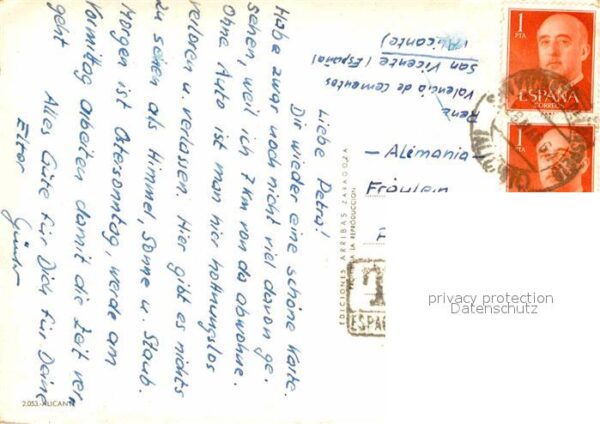 Liebe Petra!
Dir wieder eine schöne Karte.
Habe zwar noch nicht viel davon ge-
sehen, weil ich 7 km von da abwohne.
Ohne Auto ist man hier hoffnungslos
verloren u. verlassen. Hier gibt es nichts
zu sehen als Himmel, Sonne u. Staub.
Morgen ist Ostersonntag, werde am
Vormittag arbeiten damit die Zeit ver-
geht
Alles Gute für Dich für Deine
Eltern
Günter
2.053.-ALICANTE
EDICIONES ARRIBAS ZARAGOZA
LA REPRODUCCION
Renz
Valencia de Cementos
San Vicente (España)
(Alicante)
- Alemania -
Fräulein
T
ESPAÑ
1
PTA
ESPAÑA
CORREOS
1
PTA
privacy protection
Datenschutz